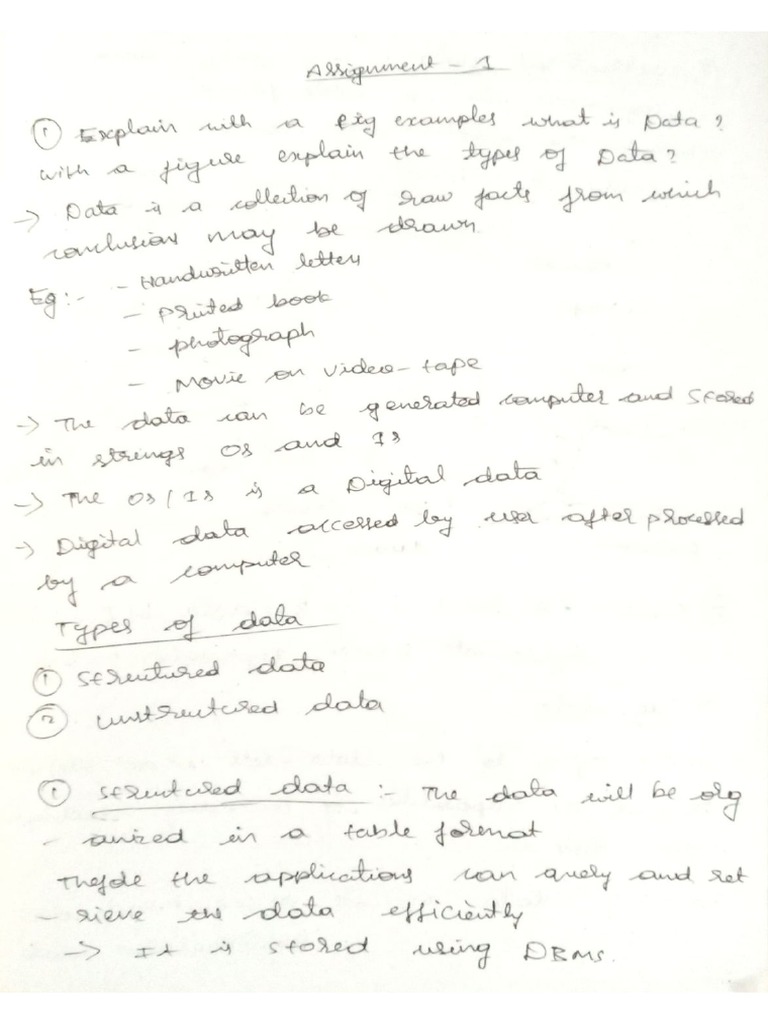 Assignment - 1
① Explain with a fig examples what is Data?
with a figure explain the types of Data?
→ Data is a collection of raw facts from which
conclusions may be drawn
Eg:- - Handwritten letters
- Printed book
- photograph
- Movie on video-tape
→ The data can be generated computer and stored
in strings 0s and 1s
→ The 0s/1s is a Digital data
→ Digital data accessed by user after processed
by a computer
Types of data
① Strutured data
② unstrutured data
① Strutured data :- The data will be org
- anized in a table format
Thefole the applications can query and ret
- rieve the data efficiently
→ It is stored using DBMS.